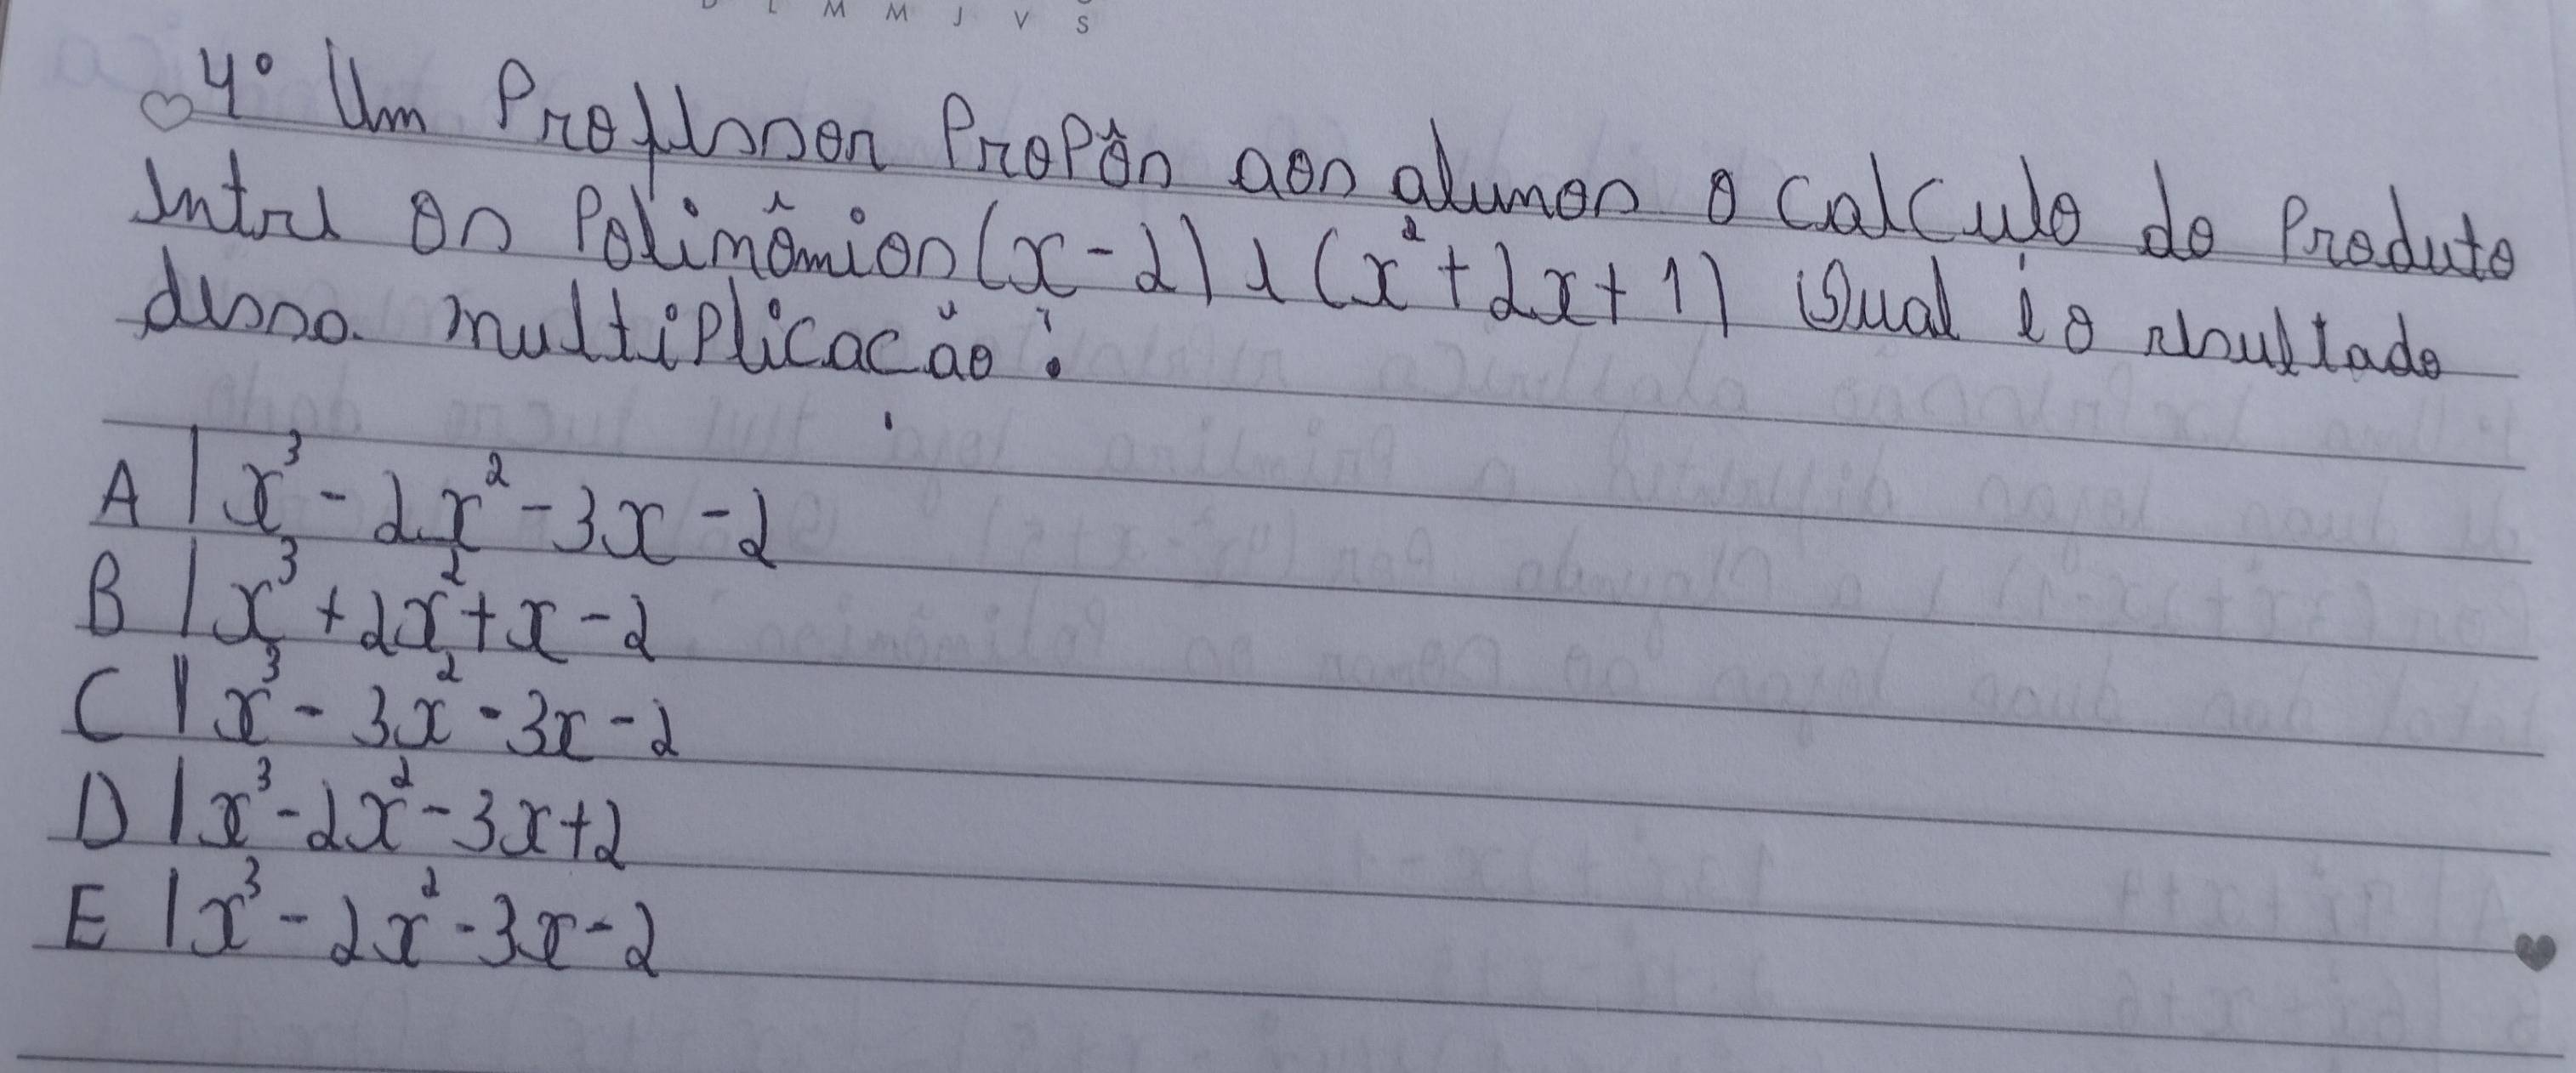 D L M M J V S
4° Um Professor Propôs aos alunos o calculo do Produto
entre os Polinômios (x-2) e (x²+2x+1) Qual é o resultado
dessa multiplicacão?
A | x³ - 2x² - 3x - 2
B | x³ + 2x² + x - 2
C | x³ - 3x² - 3x - 2
D | x³ - 2x² - 3x + 2
E | x³ - 2x² - 3x - 2